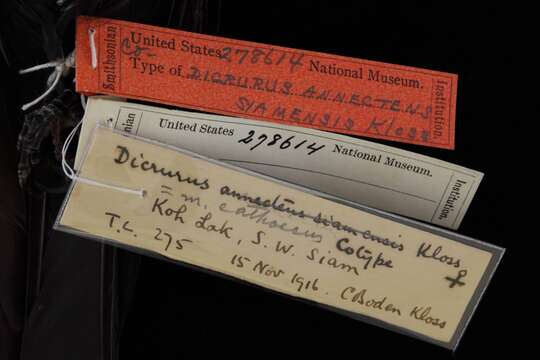 Smithsonian
United States 278614 National Museum.
Co-
Type of DICRURUS ANNECTENS
SIAMENSIS Kloss
Institution.
United States 278614 National Museum.
Institution.
Dicrurus annectens siamensis Kloss
= m. cathoecus Cotype ♀
Koh Lak, S. W. Siam
T.C. 275 15 Nov 1916. C Boden Kloss